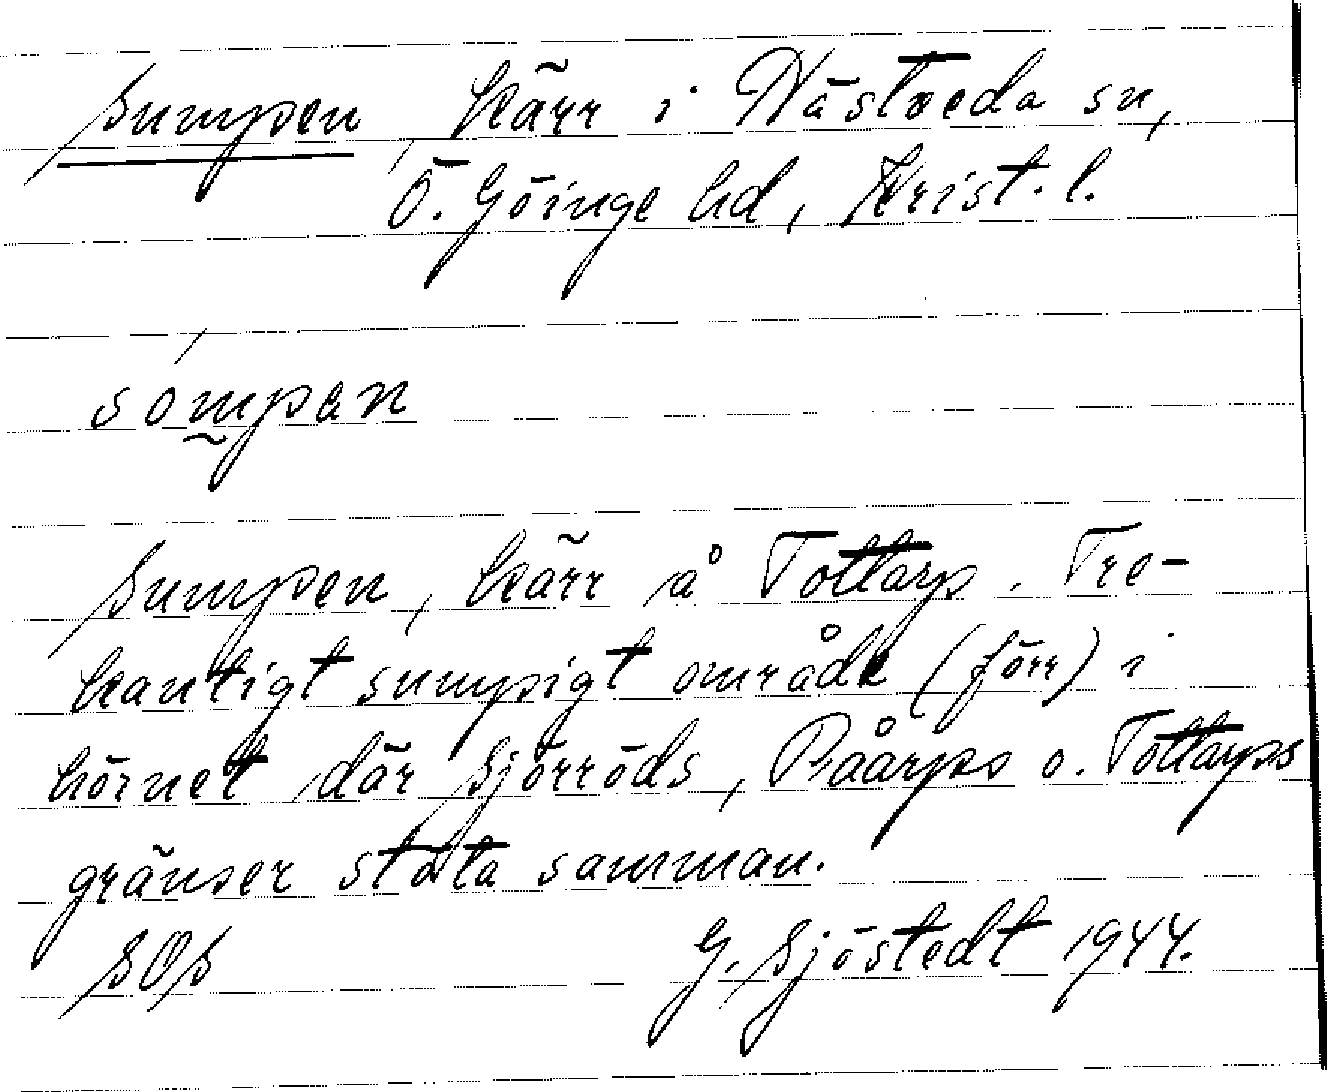 Sumpen, kärr i Nästveda sn,
Ö. Göinge hd, Krist. l.
sómpan
Sumpen, kärr å Tottarp. Tre-
kantigt sumpigt område (förr) i
hörnet där Sjörröds, Påarps o. Tottarps
gränser stöta samman.
SOS
G. Sjöstedt 1944.